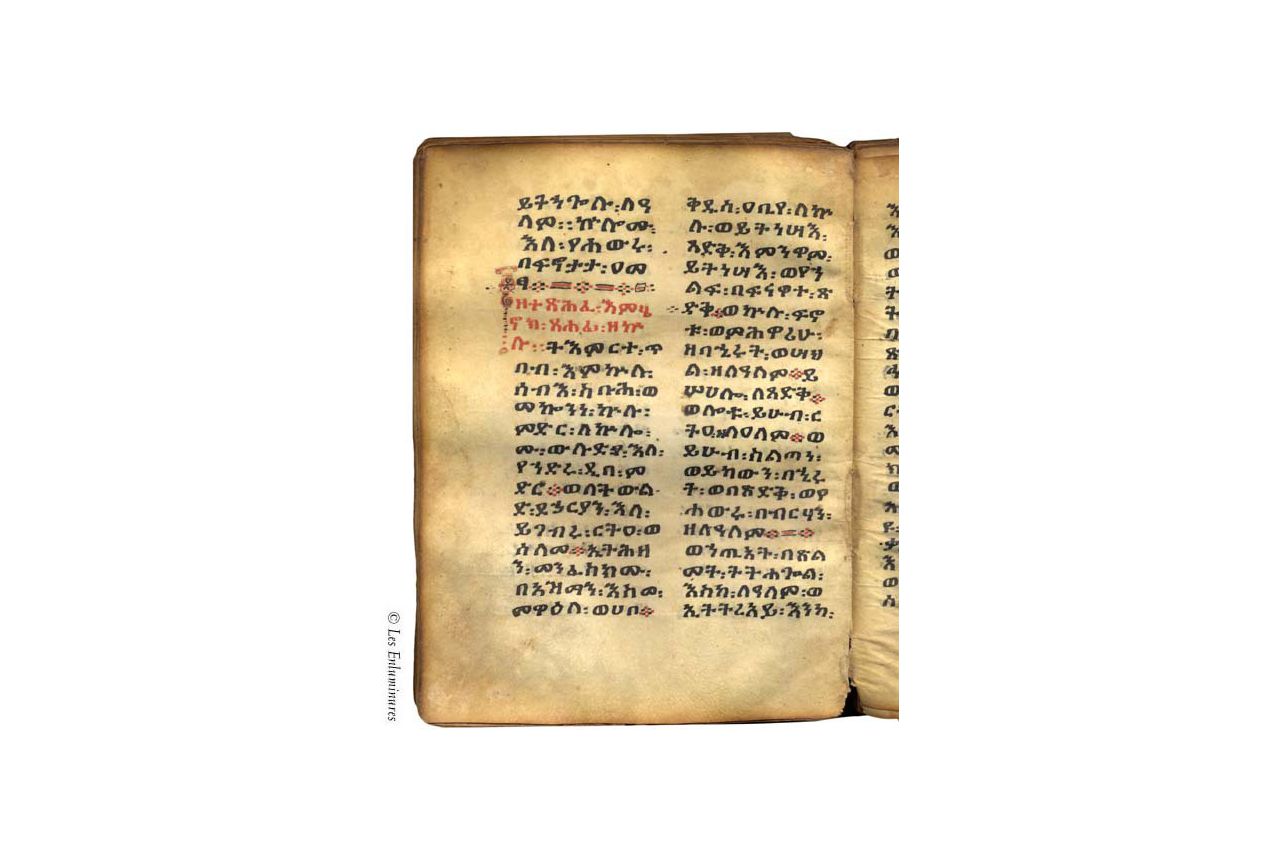 ይትኀጐሉ፡ለዓ
ለም፡፡ኵሎሙ፡
እለ፡የሐውሩ፡
በፍኖታተ፡ዐመ
ፃ
ዘተጽሕፈ፡እምሄ
ኖክ፡ጸሐፊ፡ዘኵ
ሉ፡፡ትእምርተ፡ጥ
በብ፡እምኵሉ፡
ሰብእ፡እቡሕ፡ወ
መኰንነ፡ኵሉ፡
ምድር፡ለኵሎ፡
ሙ፡ውሉድየ፡እለ፡
የኀድሩ፡ዲበ፡ም
ድር፡ወለትውል
ድ፡ደኃርያን፡እለ፡
ይገብሩ፡ርትዐ፡ወ
ሰላመ፡ኢትሕዘ
ን፡መንፈስክሙ፡
በአዝማን፡እስመ፡
መዋዕለ፡ወሀበ
ቅዱስ፡ዐቢየ፡ለኵ
ሉ፡ወይትነሣእ፡
ጻድቅ፡እምንዋም፡
ይትነሣእ፡ወየኀ
ልፍ፡በፍናዋተ፡ጽ
ድቅ፡ወኵሉ፡ፍኖ
ቱ፡ወምሕዋሪሁ፡
ዘበኂሩት፡ወሣህ
ል፡ዘለዓለም፡ይ
ሣሀሎ፡ለጻድቅ፡
ወሎቱ፡ይሁብ፡ር
ትዐ፡ለዓለም፡ወ
ይሁብ፡ስልጣነ፡
ወይከውን፡በኂሩ
ት፡ወበጽድቅ፡ወየ
ሐውሩ፡በብርሃን፡
ዘለዓለም፡
ወኀጢአት፡በጽል
መት፡ትትሐጐል፡
እስከ፡ለዓለም፡ወ
ኢትትረአይ፡እንከ፡
© Les Enluminures